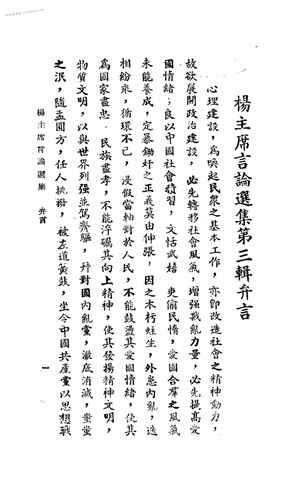 楊主席言論選集第三輯弁言
心理建設，爲喚起民衆之基本工作，亦卽改造社會之精神動力，
故欲展開政治建設，必先轉移社會風氣，增强戡亂力量，必先提高愛
國情緒；良以中國社會積習，文恬武嬉　吏偷民惰，愛國合羣之風氣
未能養成，定暴鋤奸之正義莫由伸張，因之木朽蛀生，外患內亂，迭
相紛乘，循環不已，浸假當軸對於人民，不能鼓盪其愛國情緒，使其
爲國家盡忠　民族盡孝，不能淬礪其向上精神，使其發揚精神文明，
物質文明，以與世界列强並駕齊驅，幷對國內亂黨，澈底消滅，蚩蚩
之氓，隨盂圓方，任人挑撥，被左道簧鼓，坐令中國共產黨以思想戰
楊主席言論選集　弁言
一